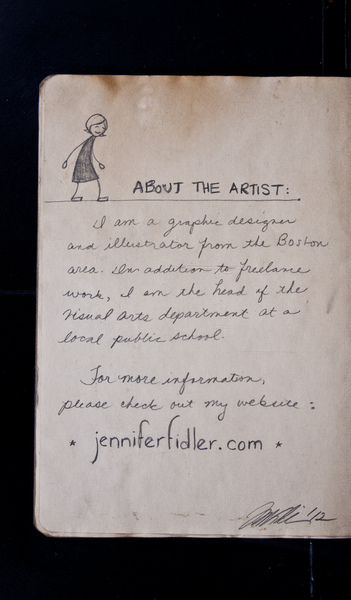 ABOUT THE ARTIST:
I am a graphic designer
and illustrator from the Boston
area. In addition to freelance
work, I am the head of the
Visual Arts department at a
local public school.
For more information,
please check out my website:
* jenniferfidler.com *
'12